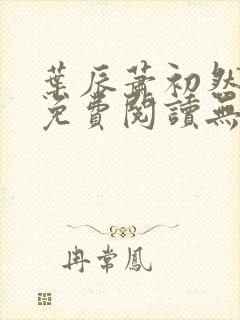 葉辰蕭初然
免費閱讀無
冉常鳳